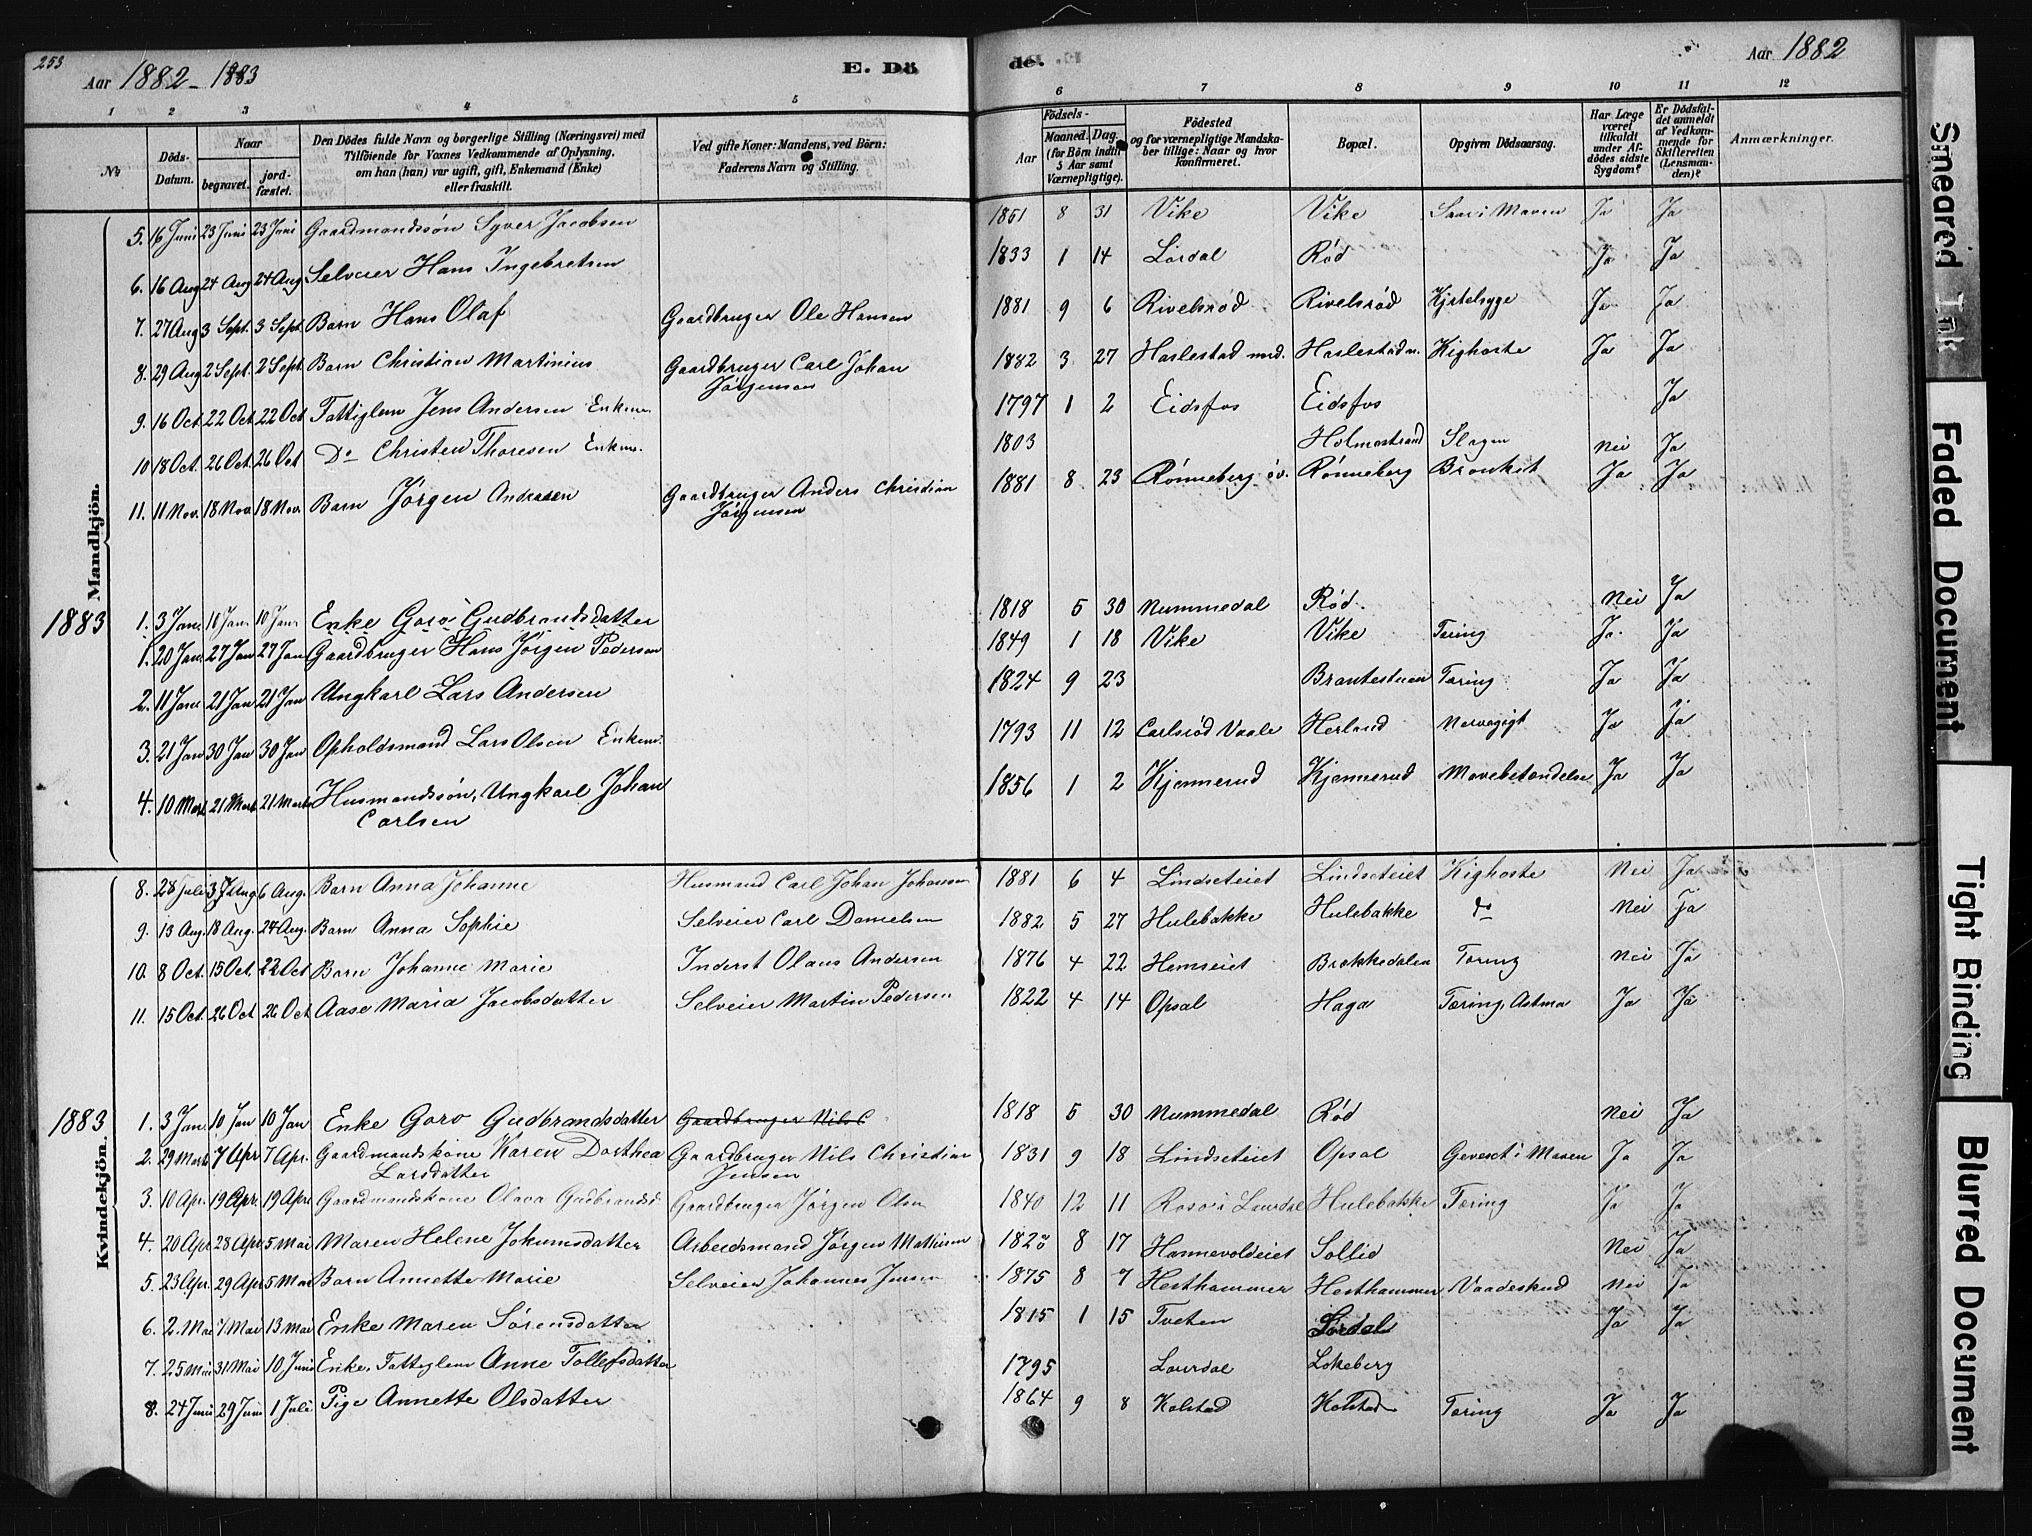 253
Aar 1882-1883
E. Dö
de.
Aar 1882
1 2 3 4 5 6 7 8 9 10 11 12
№
Döds-Datum.
Naar
begravet.
jord-fæstet.
Den Dödes fulde Navn og borgerlige Stilling (Næringsvei) med
Tilföiende for Voxnes Vedkommende af Oplysning.
om han (hun) var ugift, gift, Enkemand (Enke)
eller fraskilt.
Ved gifte Koner: Mandens, ved Börn:
Faderens Navn og Stilling.
Födsels-
Aar
Maaned. Dag.
(for Börn indtil
5 Aar samt
Værnepligtige).
Födested
og for værnepligtige Mandska-
ber tillige: Naar og hvor
konfirmeret.
Bopæl.
Opgiven Dödsaarsag.
Har Læge
været
tilkaldt
under Af-
dödes sidste
Sygdom?
Er Dödsfal-
det anmeldt
af Vedkom-
mende for
Skifteretten
(Lensman-
den)?
Anmærkninger.
Mandkjön.
5. 16 Juni 23 Juni 23 Juni Gaardmandssøn Syver Jacobsen 1851 8 31 Vike Vike Saar i Maven Ja Ja
6. 16 Aug 24 Aug 24 Aug Selveier Hans Ingebretsen 1833 1 14 Lørdal Rød Ja Ja
7. 27 Aug 3 Sept. 3 Sept. Barn Hans Olaf Gaardbruger Ole Hansen 1881 9 6 Rivelsrød Rivelsrød Kjrtelsyge Ja Ja
8. 29 Aug 2 Sept. 2 Sept. Barn Christian Martinius Gaardbruger Carl Johan Jørgensen 1882 3 27 Haslestad ned. Haslestad n. Kighoste Ja Ja
9. 16 Oct. 22 Oct. 22 Oct Fattiglem Jens Andersen Enkem. 1797 1 2 Eidsfos Eidsfos Ja
10 18 Oct. 26 Oct. 26 Oct Do Christen Thoresen Enkem. 1803 Holmestrand Slagen Nei Ja
11. 11 Nov. 18 Nov. 18 Nov. Barn Jørgen Andersen Gaardbruger Anders Christian Jørgensen 1881 8 23 Rønneberg øv. Rønneberg Bronkit Ja Ja
1883
1. 3 Jan. 10 Jan. 10 Jan. Enke Goro Gudbrandsdatter 1818 5 30 Nummedal Rød. Nei Ja
1. 20 Jan. 27 Jan 27 Jan Gaardbruger Hans Jørgen Pedersen 1849 1 18 Vike Vike Tæring Ja Ja
2. 11 Jan. 21 Jan 21 Jan Ungkarl Lars Andersen 1824 9 23 Brantestuen Tæring Ja Ja
3. 21 Jan 30 Jan 30 Jan Opholdsmand Lars Olsen Enkem. 1793 11 12 Carlsrød Vaale Herland Nervegigt Ja Ja
4. 10 Marts 21 Marts 21 Marts Husmandssøn, Ungkarl Johan Carlsen 1856 1 2 Kjennerud Kjennerud Mavebetændelse Ja Ja
8. 28 Juli 3 Aug 6 Aug. Barn Anna Johanne Husmand Carl Johan Johansen 1881 6 4 Lindseteiet Lindseteiet Kighoste Nei Ja
9. 13 Aug. 18 Aug. 24 Aug. Barn Anna Sophie Selveier Carl Danielsen 1882 5 27 Hulebakke Hulebakke do Nei Ja
10. 8 Oct. 15 Oct. 22 Oct Barn Johanne Marie Inderst Olaus Andersen 1876 4 22 Hemseiet Brækkedalen Tæring Nei Ja
11. 15 Oct. 26 Oct 26 Oct Aase Maria Jacobsdatter Selveier Martin Pedersen 1822 4 14 Opsal Haga Tæring, Astma Ja Ja
1883
Kvindekjön.
1. 3 Jan. 10 Jan 10 Jan Enke Goro Gudbrandsdatter Gaardbruger Nils C 1818 5 30 Nummedal Rød Nei Ja
2. 29 Marts 7 Apr 7 Apr. Gaardmandskone Karen Dorthea Larsdatter Gaardbruger Nils Christian Jensen 1831 9 18 Lindseteiet Opsal Gevext i Maven Ja Ja
3. 10 Apr. 19 Apr. 19 Apr. Gaardmandskone Olava Gudbrandsd. Gaardbruger Jørgen Olsen 1840 12 11 Laurdal Hulebakke Tæring Ja Ja
4. 20 Apr 28 Apr 5 Mai Maren Helene Johannesdatter Arbeidsmand Jørgen Mathisen 1820 8 17 Hannevoldeiet Sollid Nei Ja
5. 23 Apr. 29 Apr 5 Mai Barn Annette Marie Selveier Johannes Jensen 1875 8 7 Hesthammer Hesthammer Vaadeskud Nei Ja
6. 2. Mai 7 Mai 13 Mai Enke Maren Sørensdatter 1815 1 15 Tveten Lørdal Ja Ja
7. 25 Mai 31 Mai 10 Juni Enke, Fattiglem Anne Tollefsdatter 1795 Laurdal Lokeberg
8. 24 Juni 29 Juni 1 Juli Pige Annette Olsdatter 1864 9 8 Kolstad Kolstad Tæring Ja Ja
Smeared Ink
Faded Document
Tight Binding
Blurred Document